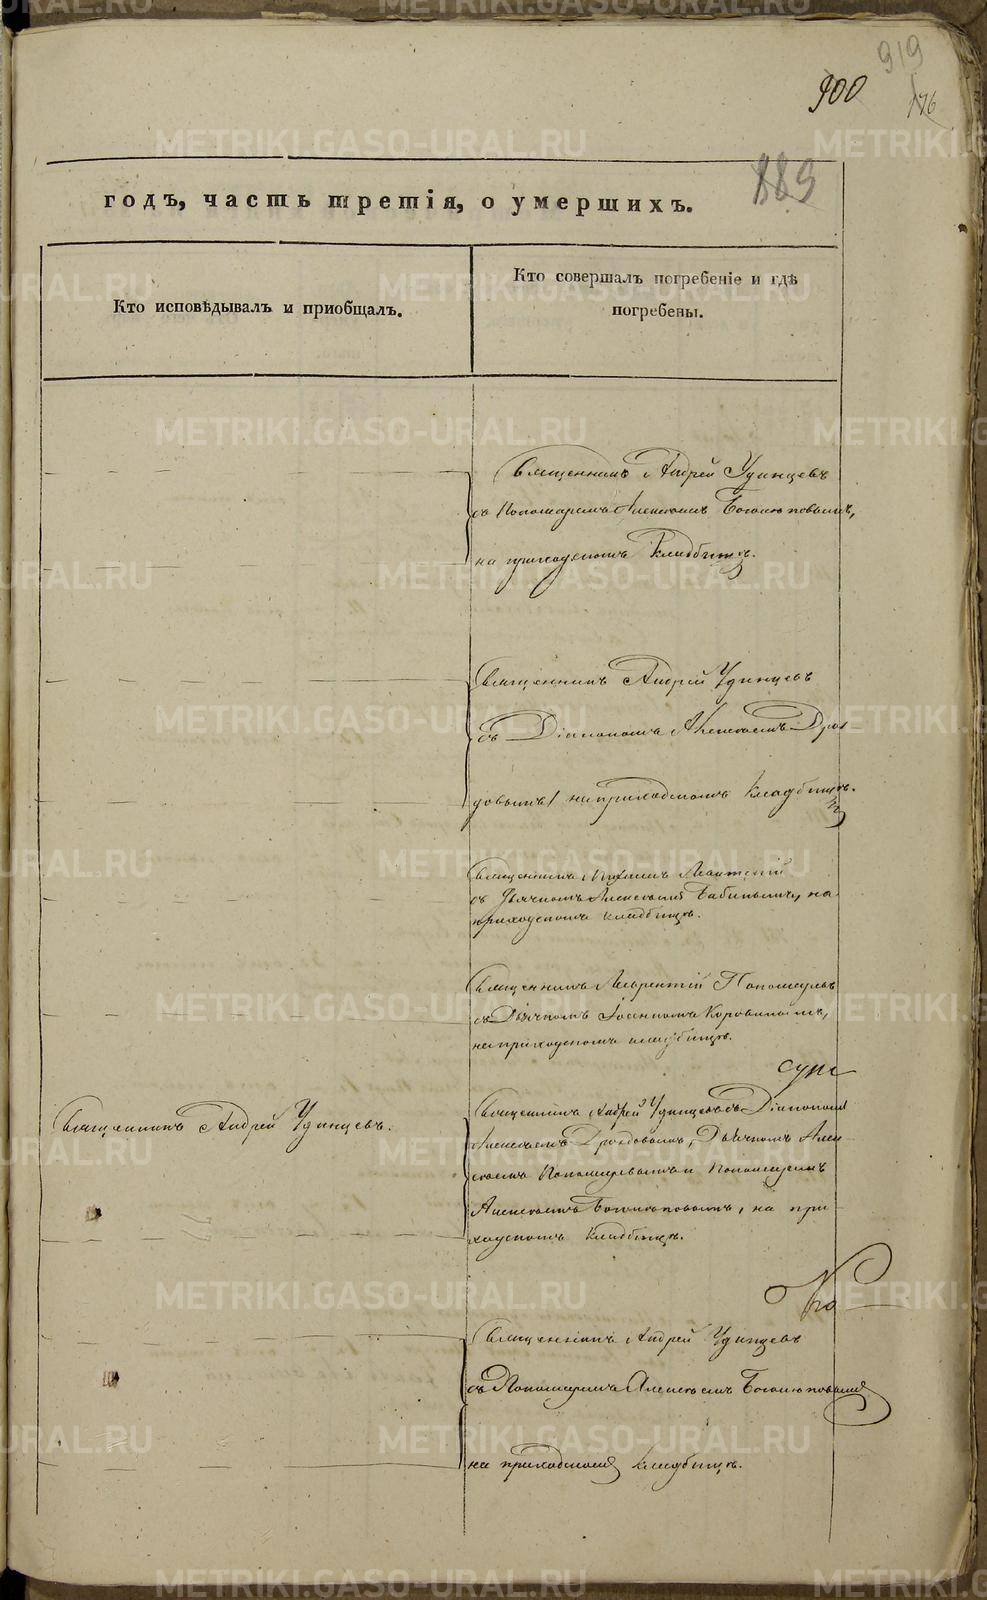 919
900
176
889
годъ, часть третія, о умершихъ.
Кто исповѣдывалъ и приобщалъ.
Кто совершалъ погребеніе и гдѣ
погребены.
Священникъ Андрей Удинцевъ
съ Пономаремъ Алексѣемъ Боголюповымъ,
на приходскомъ кладбищѣ.
Священникъ Андрей Удинцевъ
съ Діакономъ Алексѣемъ Дроз
довымъ на приходскомъ кладбищѣ.
Священникъ
съ Дьячкомъ Алексѣемъ Бабинымъ, на
приходскомъ кладбищѣ.
Священникъ Лаврентій Пономаревъ
съ Дьячкомъ Коровинымъ,
на приходскомъ кладбищѣ.
Священникъ Андрей Удинцевъ.
Священникъ Андрей Удинцевъ съ Діакономъ
Алексѣемъ Дроздовымъ, Дьячкомъ Алек
сѣемъ Пономаревымъ и Пономаремъ
Алексѣемъ Боголюповымъ, на при
ходскомъ кладбищѣ.
Священникъ Андрей Удинцевъ
съ Пономаремъ Алексѣемъ Боголюповымъ
на приходскомъ кладбищѣ.
METRIKI.GASO-URAL.RU